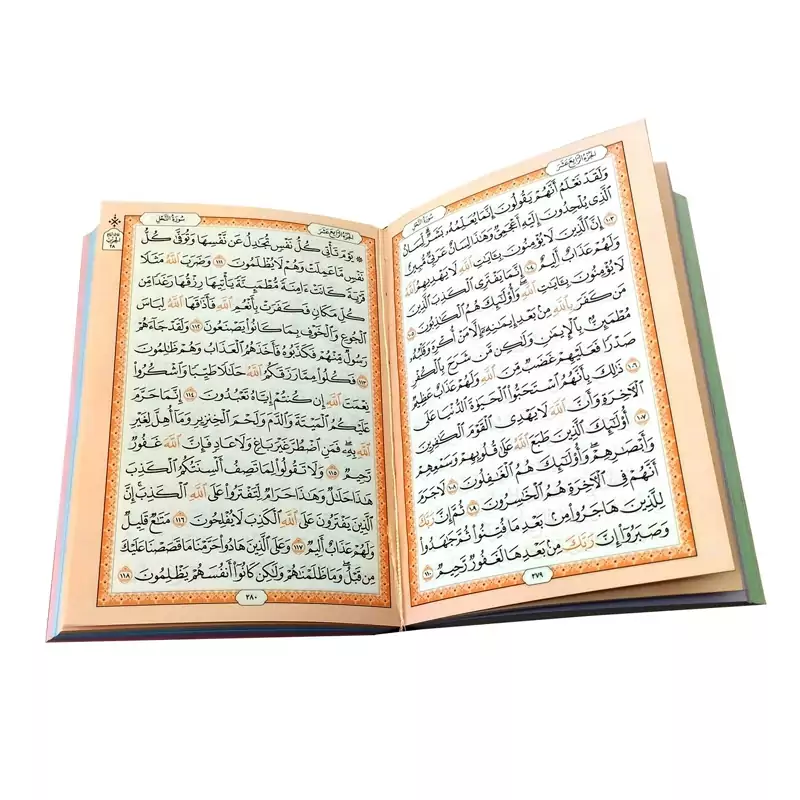 الجزء الرابع عشر
سورة النحل
وَلَقَدْ نَعْلَمُ أَنَّهُمْ يَقُولُونَ إِنَّمَا يُعَلِّمُهُۥ بَشَرٌ لِّسَانُ
ٱلَّذِى يُلْحِدُونَ إِلَيْهِ أَعْجَمِىٌّ وَهَٰذَا لِسَانٌ عَرَبِىٌّ مُّبِينٌ ١٠٣
إِنَّ ٱلَّذِينَ لَا يُؤْمِنُونَ بِـَٔايَٰتِ ٱللَّهِ لَا يَهْدِيهِمُ ٱللَّهُ
وَلَهُمْ عَذَابٌ أَلِيمٌ ١٠٤ إِنَّمَا يَفْتَرِى ٱلْكَذِبَ ٱلَّذِينَ
لَا يُؤْمِنُونَ بِـَٔايَٰتِ ٱللَّهِ وَأُو۟لَٰٓئِكَ هُمُ ٱلْكَٰذِبُونَ ١٠٥
مَن كَفَرَ بِٱللَّهِ مِنۢ بَعْدِ إِيمَٰنِهِۦٓ إِلَّا مَنْ أُكْرِهَ وَقَلْبُهُۥ
مُطْمَئِنٌّۢ بِٱلْإِيمَٰنِ وَلَٰكِن مَّن شَرَحَ بِٱلْكُفْرِ
صَدْرًا فَعَلَيْهِمْ غَضَبٌ مِّنَ ٱللَّهِ وَلَهُمْ عَذَابٌ عَظِيمٌ ١٠٦
ذَٰلِكَ بِأَنَّهُمُ ٱسْتَحَبُّوا۟ ٱلْحَيَوٰةَ ٱلدُّنْيَا عَلَى
ٱلْءَاخِرَةِ وَأَنَّ ٱللَّهَ لَا يَهْدِى ٱلْقَوْمَ ٱلْكَٰفِرِينَ ١٠٧
أُو۟لَٰٓئِكَ ٱلَّذِينَ طَبَعَ ٱللَّهُ عَلَىٰ قُلُوبِهِمْ وَسَمْعِهِمْ
وَأَبْصَٰرِهِمْ وَأُو۟لَٰٓئِكَ هُمُ ٱلْغَٰفِلُونَ ١٠٨ لَا جَرَمَ
أَنَّهُمْ فِى ٱلْءَاخِرَةِ هُمُ ٱلْخَٰسِرُونَ ١٠٩ ثُمَّ إِنَّ رَبَّكَ
لِلَّذِينَ هَاجَرُوا۟ مِنۢ بَعْدِ مَا فُتِنُوا۟ ثُمَّ جَٰهَدُوا۟
وَصَبَرُوٓا۟ إِنَّ رَبَّكَ مِنۢ بَعْدِهَا لَغَفُورٌ رَّحِيمٌ ١١٠
٢٧٩
الجزء الرابع عشر
سورة النحل
۞ يَوْمَ تَأْتِى كُلُّ نَفْسٍ تُجَٰدِلُ عَن نَّفْسِهَا وَتُوَفَّىٰ كُلُّ
نَفْسٍ مَّا عَمِلَتْ وَهُمْ لَا يُظْلَمُونَ ١١١ وَضَرَبَ ٱللَّهُ مَثَلًا
قَرْيَةً كَانَتْ ءَامِنَةً مُّطْمَئِنَّةً يَأْتِيهَا رِزْقُهَا رَغَدًا مِّن
كُلِّ مَكَانٍ فَكَفَرَتْ بِأَنْعُمِ ٱللَّهِ فَأَذَٰقَهَا ٱللَّهُ لِبَاسَ
ٱلْجُوعِ وَٱلْخَوْفِ بِمَا كَانُوا۟ يَصْنَعُونَ ١١٢ وَلَقَدْ جَآءَهُمْ
رَسُولٌ مِّنْهُمْ فَكَذَّبُوهُ فَأَخَذَهُمُ ٱلْعَذَابُ وَهُمْ ظَٰلِمُونَ
١١٣ فَكُلُوا۟ مِمَّا رَزَقَكُمُ ٱللَّهُ حَلَٰلًا طَيِّبًا وَٱشْكُرُوا۟
نِعْمَتَ ٱللَّهِ إِن كُنتُمْ إِيَّاهُ تَعْبُدُونَ ١١٤ إِنَّمَا حَرَّمَ
عَلَيْكُمُ ٱلْمَيْتَةَ وَٱلدَّمَ وَلَحْمَ ٱلْخِنزِيرِ وَمَآ أُهِلَّ لِغَيْرِ
ٱللَّهِ بِهِۦ فَمَنِ ٱضْطُرَّ غَيْرَ بَاغٍ وَلَا عَادٍ فَإِنَّ ٱللَّهَ غَفُورٌ
رَّحِيمٌ ١١٥ وَلَا تَقُولُوا۟ لِمَا تَصِفُ أَلْسِنَتُكُمُ ٱلْكَذِبَ
هَٰذَا حَلَٰلٌ وَهَٰذَا حَرَامٌ لِّتَفْتَرُوا۟ عَلَى ٱللَّهِ ٱلْكَذِبَ إِنَّ
ٱلَّذِينَ يَفْتَرُونَ عَلَى ٱللَّهِ ٱلْكَذِبَ لَا يُفْلِحُونَ ١١٦ مَتَٰعٌ قَلِيلٌ
وَلَهُمْ عَذَابٌ أَلِيمٌ ١١٧ وَعَلَى ٱلَّذِينَ هَادُوا۟ حَرَّمْنَا مَا قَصَصْنَا عَلَيْكَ
مِن قَبْلُ وَمَا ظَلَمْنَٰهُمْ وَلَٰكِن كَانُوٓا۟ أَنفُسَهُمْ يَظْلِمُونَ ١١٨
٢٨٠
الحزب
٢٨